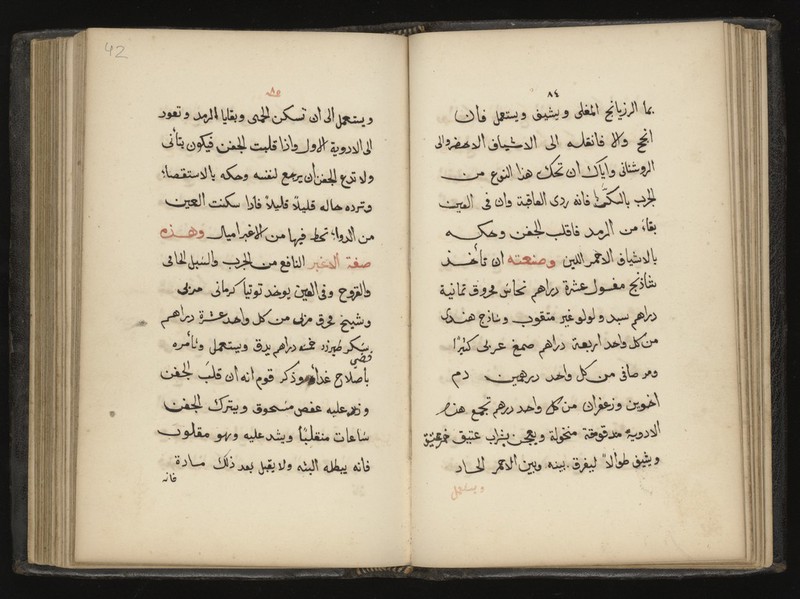 ٨٤
بما الرزيانج المغلى ويشيف ويستعمل فان
انجح والا فانقله الى الاشياف الاخضر والى
الروشنائى واياك ان تحك هذا النوع من
الجرب بالسكر فانه ردى العاقبة وان فى العين
بقاء من الرمد فاقلب الجفن وحكه
بالاشياف الاحمر اللين وصنعته ان تأخذ
شاذنج مغسول عشرة دراهم نحاس محروق ثمانية
دراهم سبد ولولو غير مثقوب وساذج هندى
من كل واحد اربعة دراهم صمغ عربى كثيرا
ومر صافى من كل واحد درهمين دم
اخوين وزعفران من كل واحد درهم تجمع هذه
الادوية مدقوقة منخولة ويعجن بشراب عتيق
ويشيف طوالا ليفرق بينه وبين الاحمر الحاد
ويستعمل
42
٨٥
ويستعمل الى ان تسكن الحمى وبقايا الرمد وتعود
الى الادوية الاول واذا قلبت الجفن فيكون بتأنى
ولا تدع الجفن ان يرجع لنفسه وحكه بالاستقصاء
وترده حاله قليلا قليلا فاذا سكنت العين
من الدواء تحط فيها من الاغبر اميال وهذه
صفة الاغبر النافع من الجرب والسبل الحامى
والقروح وفى العين يوخذ توتيا كرمانى مربى
وشيح محرق مربى من كل واحد عشرة دراهم
سكر طبرزد خمسة دراهم يدق ويستعمل وتأمره
باصلاح غذاه وذكر قوم انه ان قلب الجفن
وذر عليه عفص مسحوق ويترك الجفن
ساعات منقلبا ويشد عليه وهو مقلوب
فانه يبطله البته ولا يقبل بعد ذلك مادة
فانه